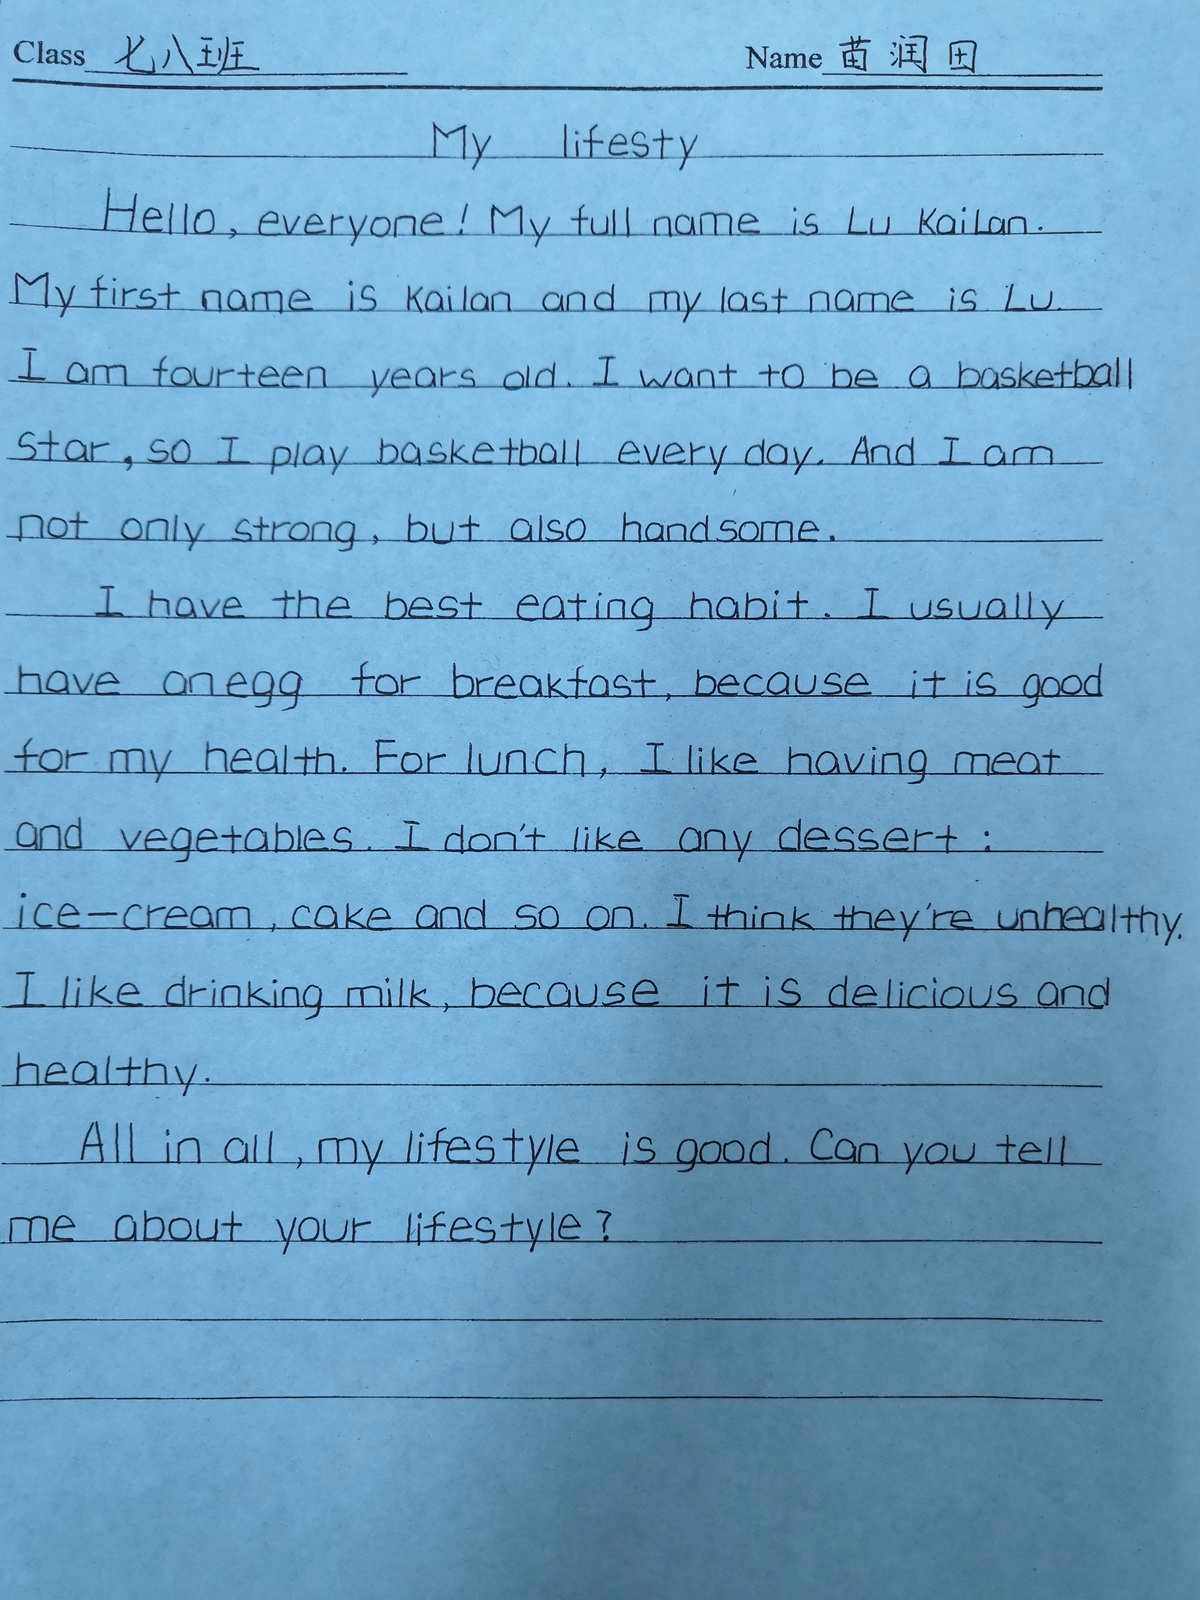 Class 七八班 Name 苗润田
My lifesty
Hello, everyone! My full name is Lu Kailan.
My first name is Kailan and my last name is Lu.
I am fourteen years old. I want to be a basketball
star, so I play basketball every day. And I am
not only strong, but also handsome.
I have the best eating habit. I usually
have an egg for breakfast, because it is good
for my health. For lunch, I like having meat
and vegetables. I don't like any dessert:
ice-cream, cake and so on. I think they're unhealthy.
I like drinking milk, because it is delicious and
healthy.
All in all, my lifestyle is good. Can you tell
me about your lifestyle?